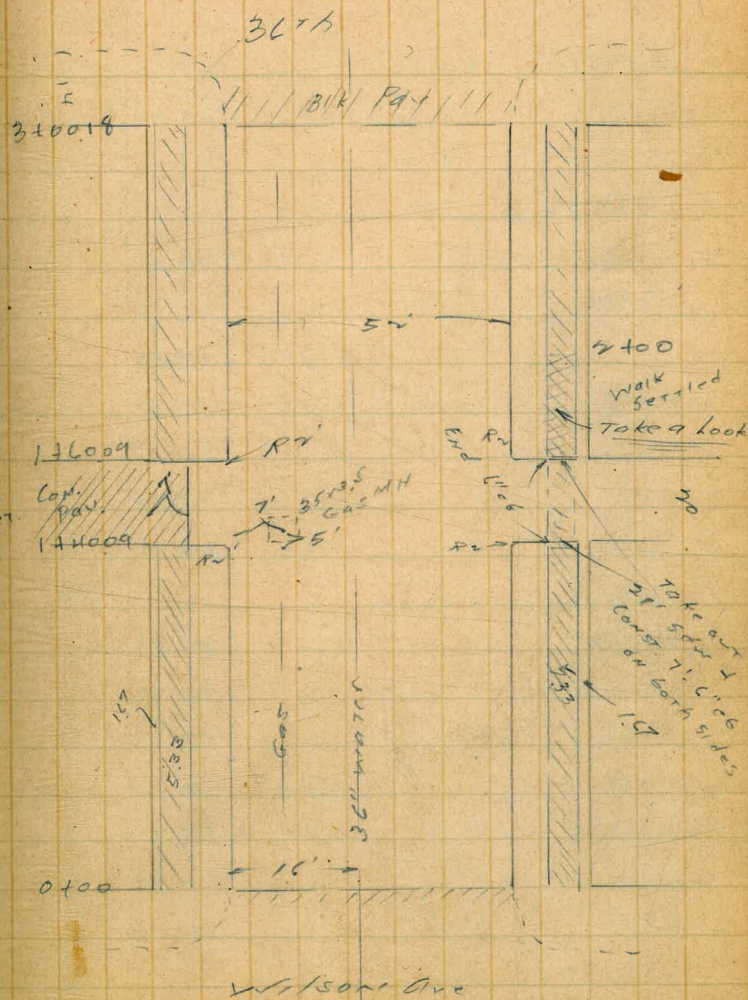 36th
Blk Pav
3+0018
52'
2+00
Walk
Settled
Take a Look
1+6009
R2'
R2
End
6"cb
Con.
pav.
7'
3.5x3.5
Gas MH
5'
20
1+4009
R2
R2
Take out
const. 7' 6"cb
on both sides
1.67
1.67
5.33
5.33
Gas
36" Water
16'
0+00
Wilson Ave